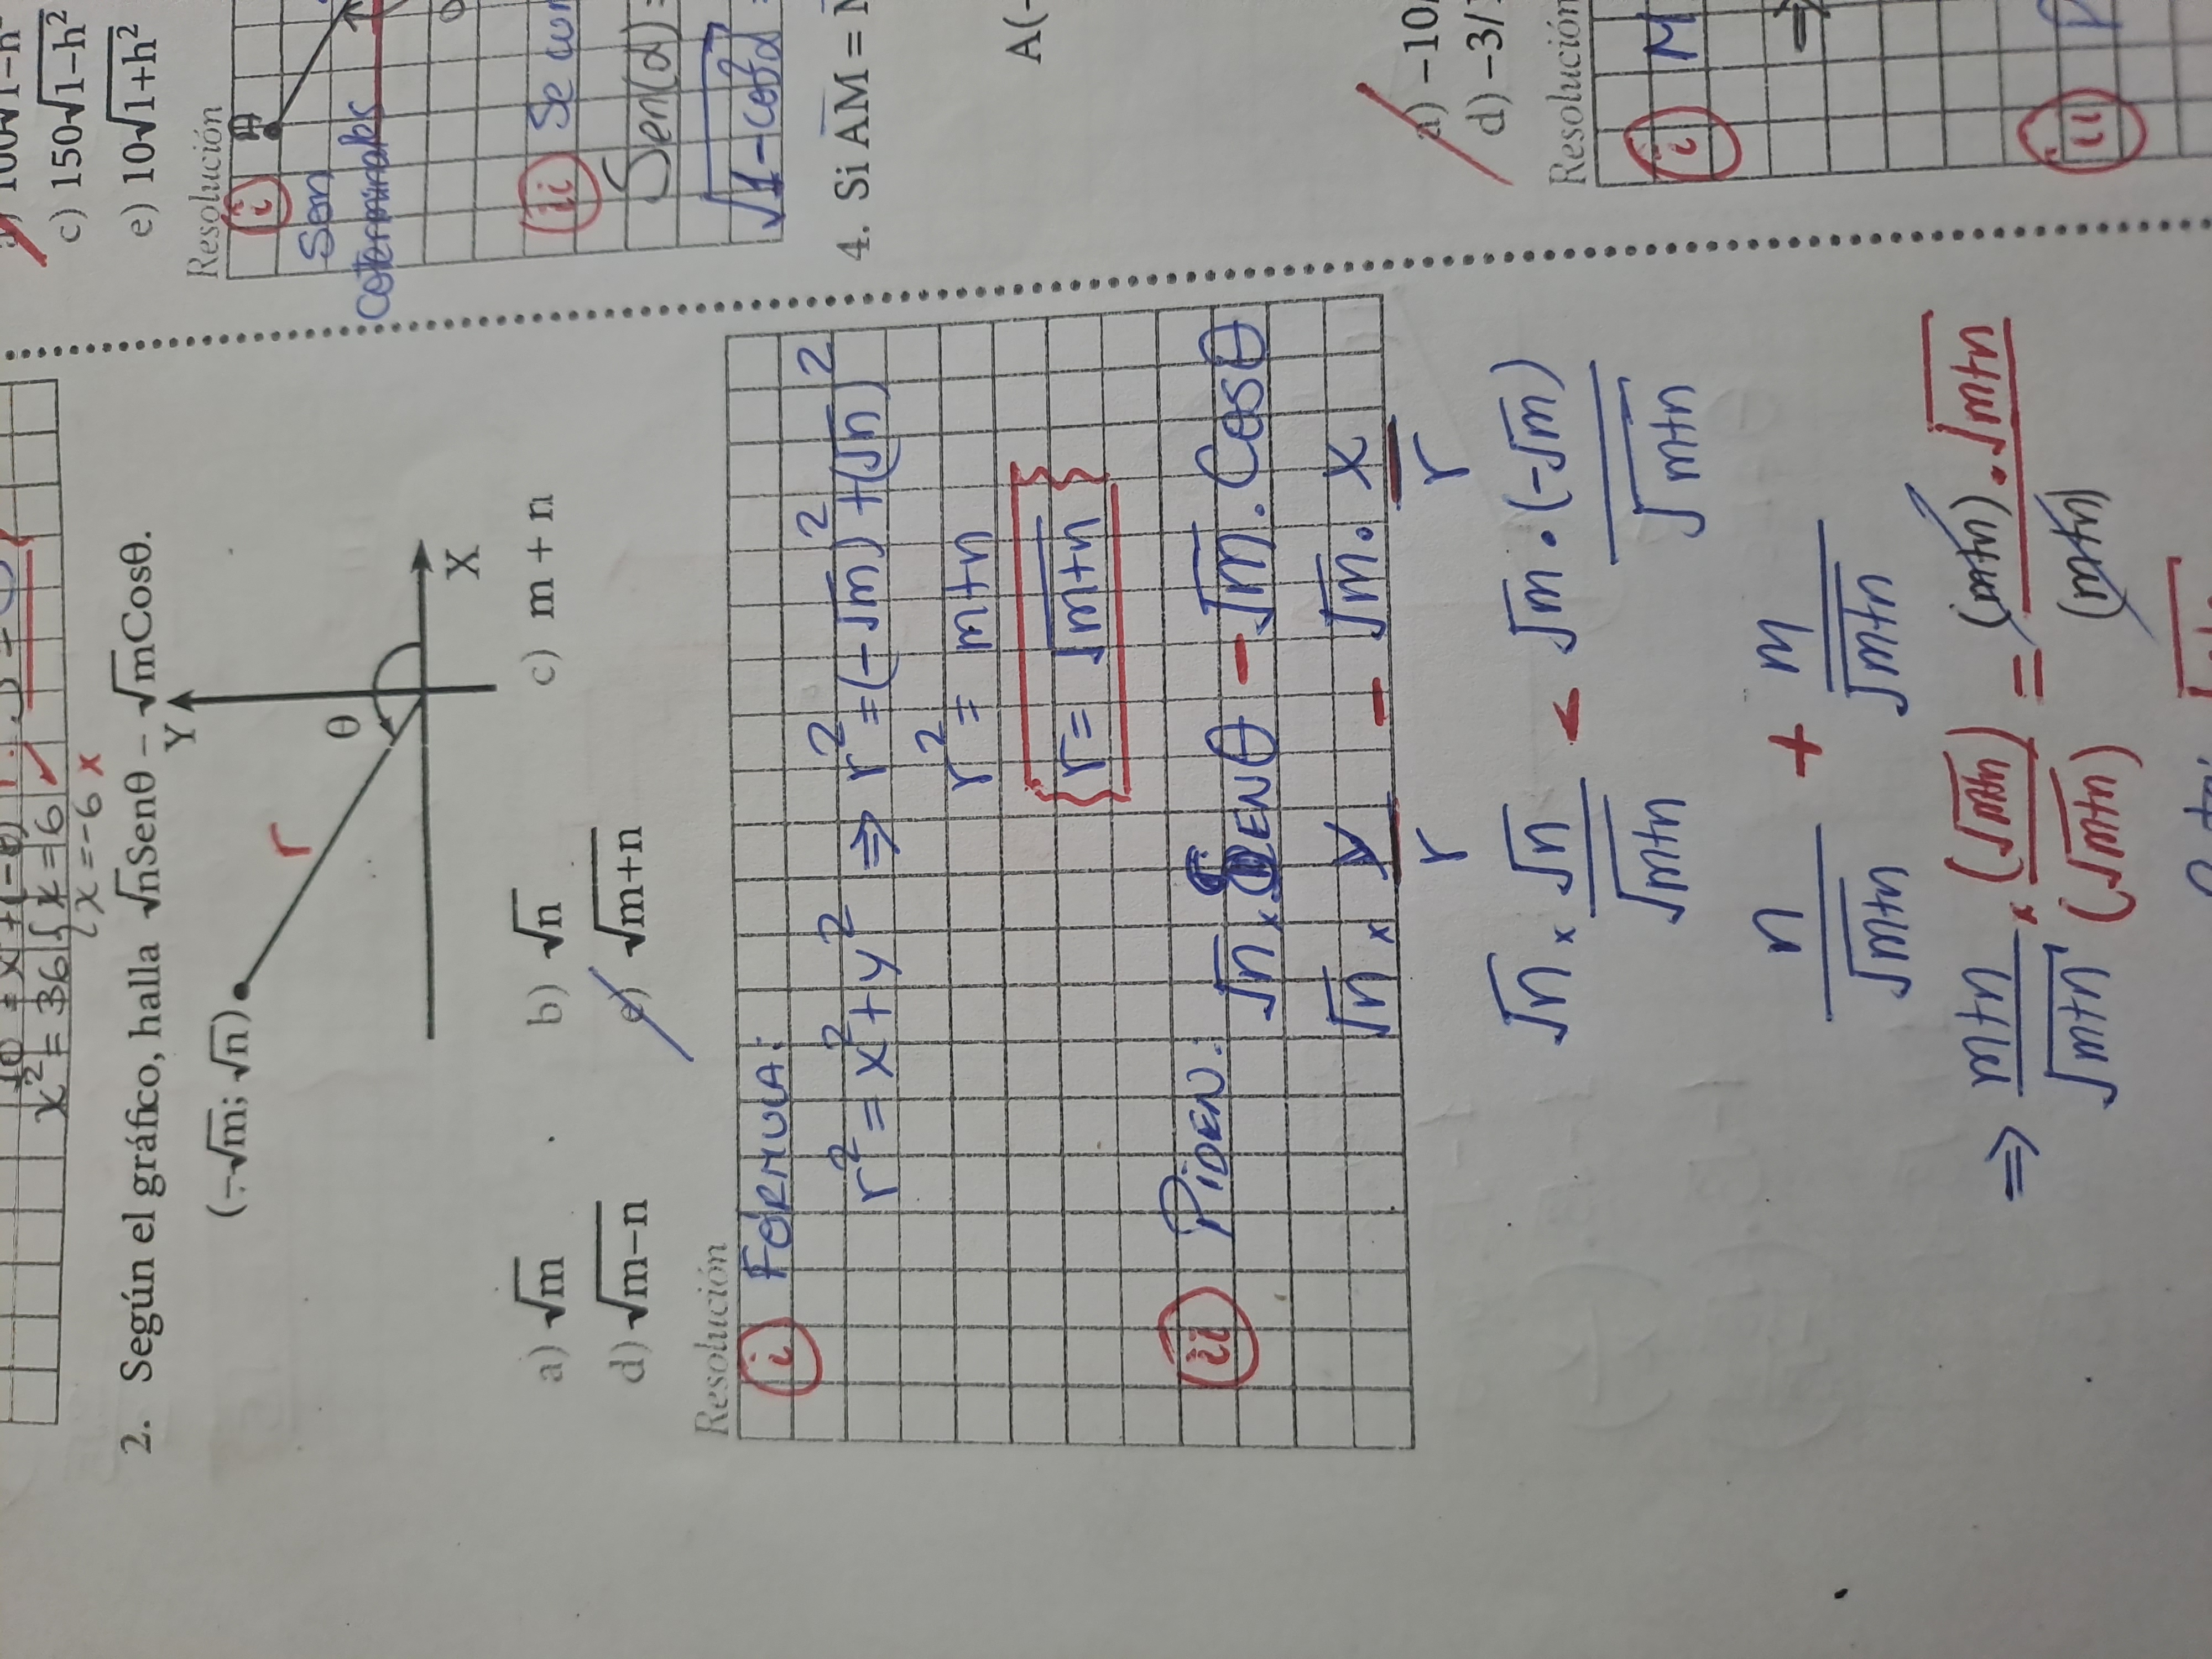 x² = 36 { x = 6 ✓
x = -6 x
2. Según el gráfico, halla √nSenθ – √mCosθ.
Y
(–√m; √n)
r
θ
X
a) √m b) √n c) m + n
d) √m–n e) √m+n
Resolución
i FÓRMULA:
r² = x² + y² ⇒ r² = (-√m)² + (√n)²
r² = m+n
r = √m+n
ii PIDEN:
√n x SENθ - √m . Cosθ
√n x y/r - √m . x/r
√n x √n/√m+n - √m . (-√m)/√m+n
n/√m+n + m/√m+n
⇒ m+n/√m+n x (√m+n)/(√m+n) = (m+n) . √m+n/(m+n)
c) 150√1–h²
e) 10√1+h²
Resolución
i
Son
coterminales
ii Se
Sen(α) =
√1-cos²α =
4. Si AM =
A(-
a) –10/
d) –3/
Resolución
i M
⇒
ii P